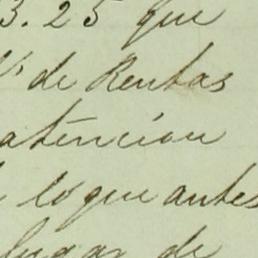 3.25 que
de Rentas
atencion
lo que antes
lugar de